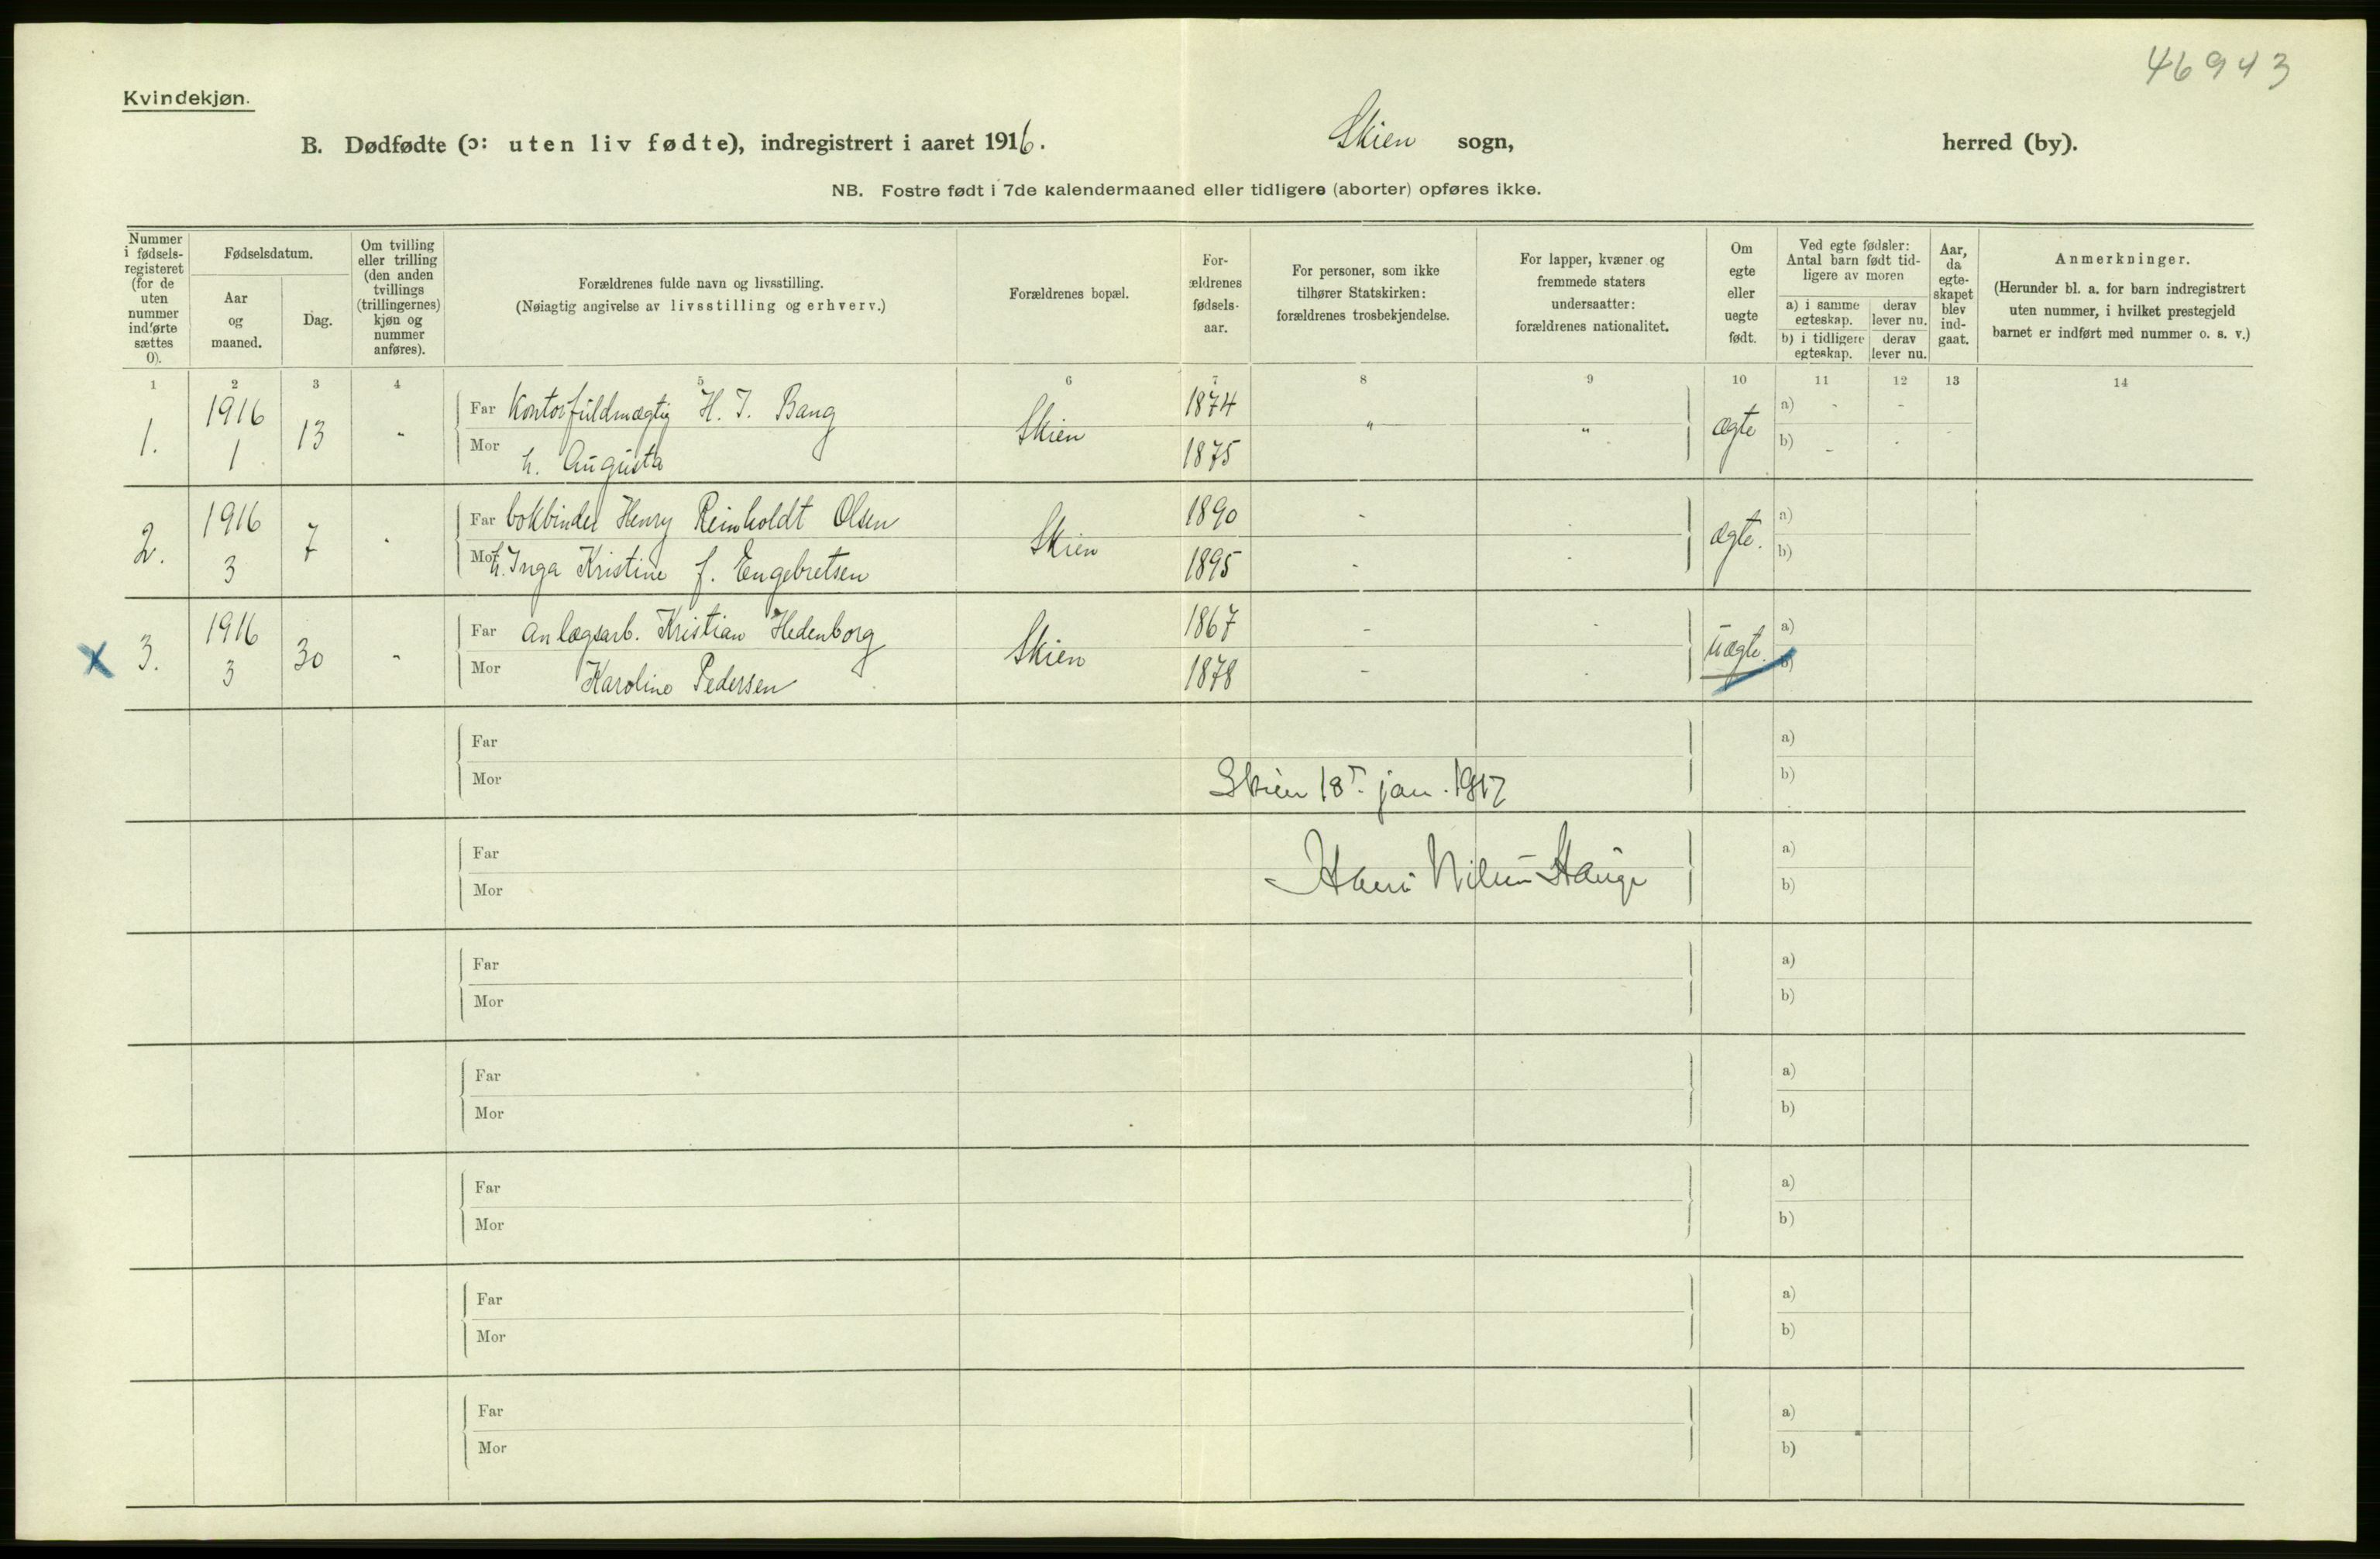 46943
Kvindekjøn.
B. Dødfødte (ɔ: uten liv fødte), indregistrert i aaret 1916. Skien sogn, herred (by).
NB. Fostre født i 7de kalendermaaned eller tidligere (aborter) opføres ikke.
Nummer i fødsels-registeret (for de uten nummer indførte sættes 0).
Fødselsdatum.
Aar og maaned.
Dag.
Om tvilling eller trilling (den anden tvillings (trillingernes) kjøn og nummer anføres).
Forældrenes fulde navn og livsstilling.
(Nøiagtig angivelse av livsstilling og erhverv.)
Forældrenes bopæl.
For-ældrenes fødsels-aar.
For personer, som ikke tilhører Statskirken: forældrenes trosbekjendelse.
For lapper, kvæner og fremmede staters undersaatter: forældrenes nationalitet.
Om egte eller uegte født.
Ved egte fødsler: Antal barn født tid-ligere av moren
a) i samme egteskap.
derav lever nu.
b) i tidligere egteskap.
derav lever nu.
Aar, da egte-skapet blev ind-gaat.
Anmerkninger.
(Herunder bl. a. for barn indregistrert uten nummer, i hvilket prestegjeld barnet er indført med nummer o. s. v.)
1 2 3 4 5 6 7 8 9 10 11 12 13 14
1. 1916 1 13 - Far Kontorfuldmægtig H. J. Bang Skien 1874 " " ægte a) - -
Mor h. Augusta 1875 b) - -
2. 1916 3 7 - Far bokbinder Henry Reinholdt Olsen Skien 1890 - - ægte. a)
Mor h. Inga Kristine f. Engebretsen 1895 - - b)
X 3. 1916 3 30 - Far anlægsarb. Kristian Hedenborg Skien 1867 - - uægte. a)
Mor Karoline Pedersen 1878 - - b)
Far a)
Mor Skien 18 jan. 1917 b)
Far a)
Mor b)
Far a)
Mor b)
Far a)
Mor b)
Far a)
Mor b)
Far a)
Mor b)
Far a)
Mor b)